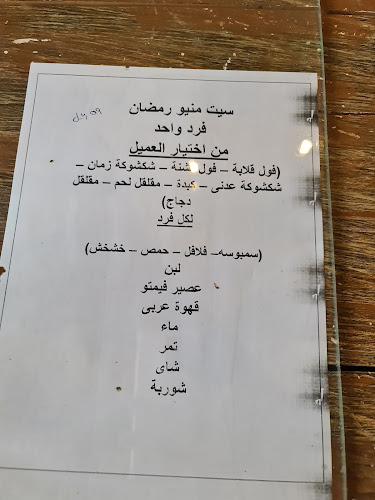 سيت منيو رمضان
فرد واحد
من اختيار العميل
(فول قلاية – فول شنة – شكشوكة زمان –
شكشوكة عدنى – كبدة – مقلقل لحم – مقلقل
دجاج)
لكل فرد
(سمبوسه– فلافل – حمص – خشخش)
لبن
عصير فيمتو
قهوة عربى
ماء
تمر
شاى
شوربة